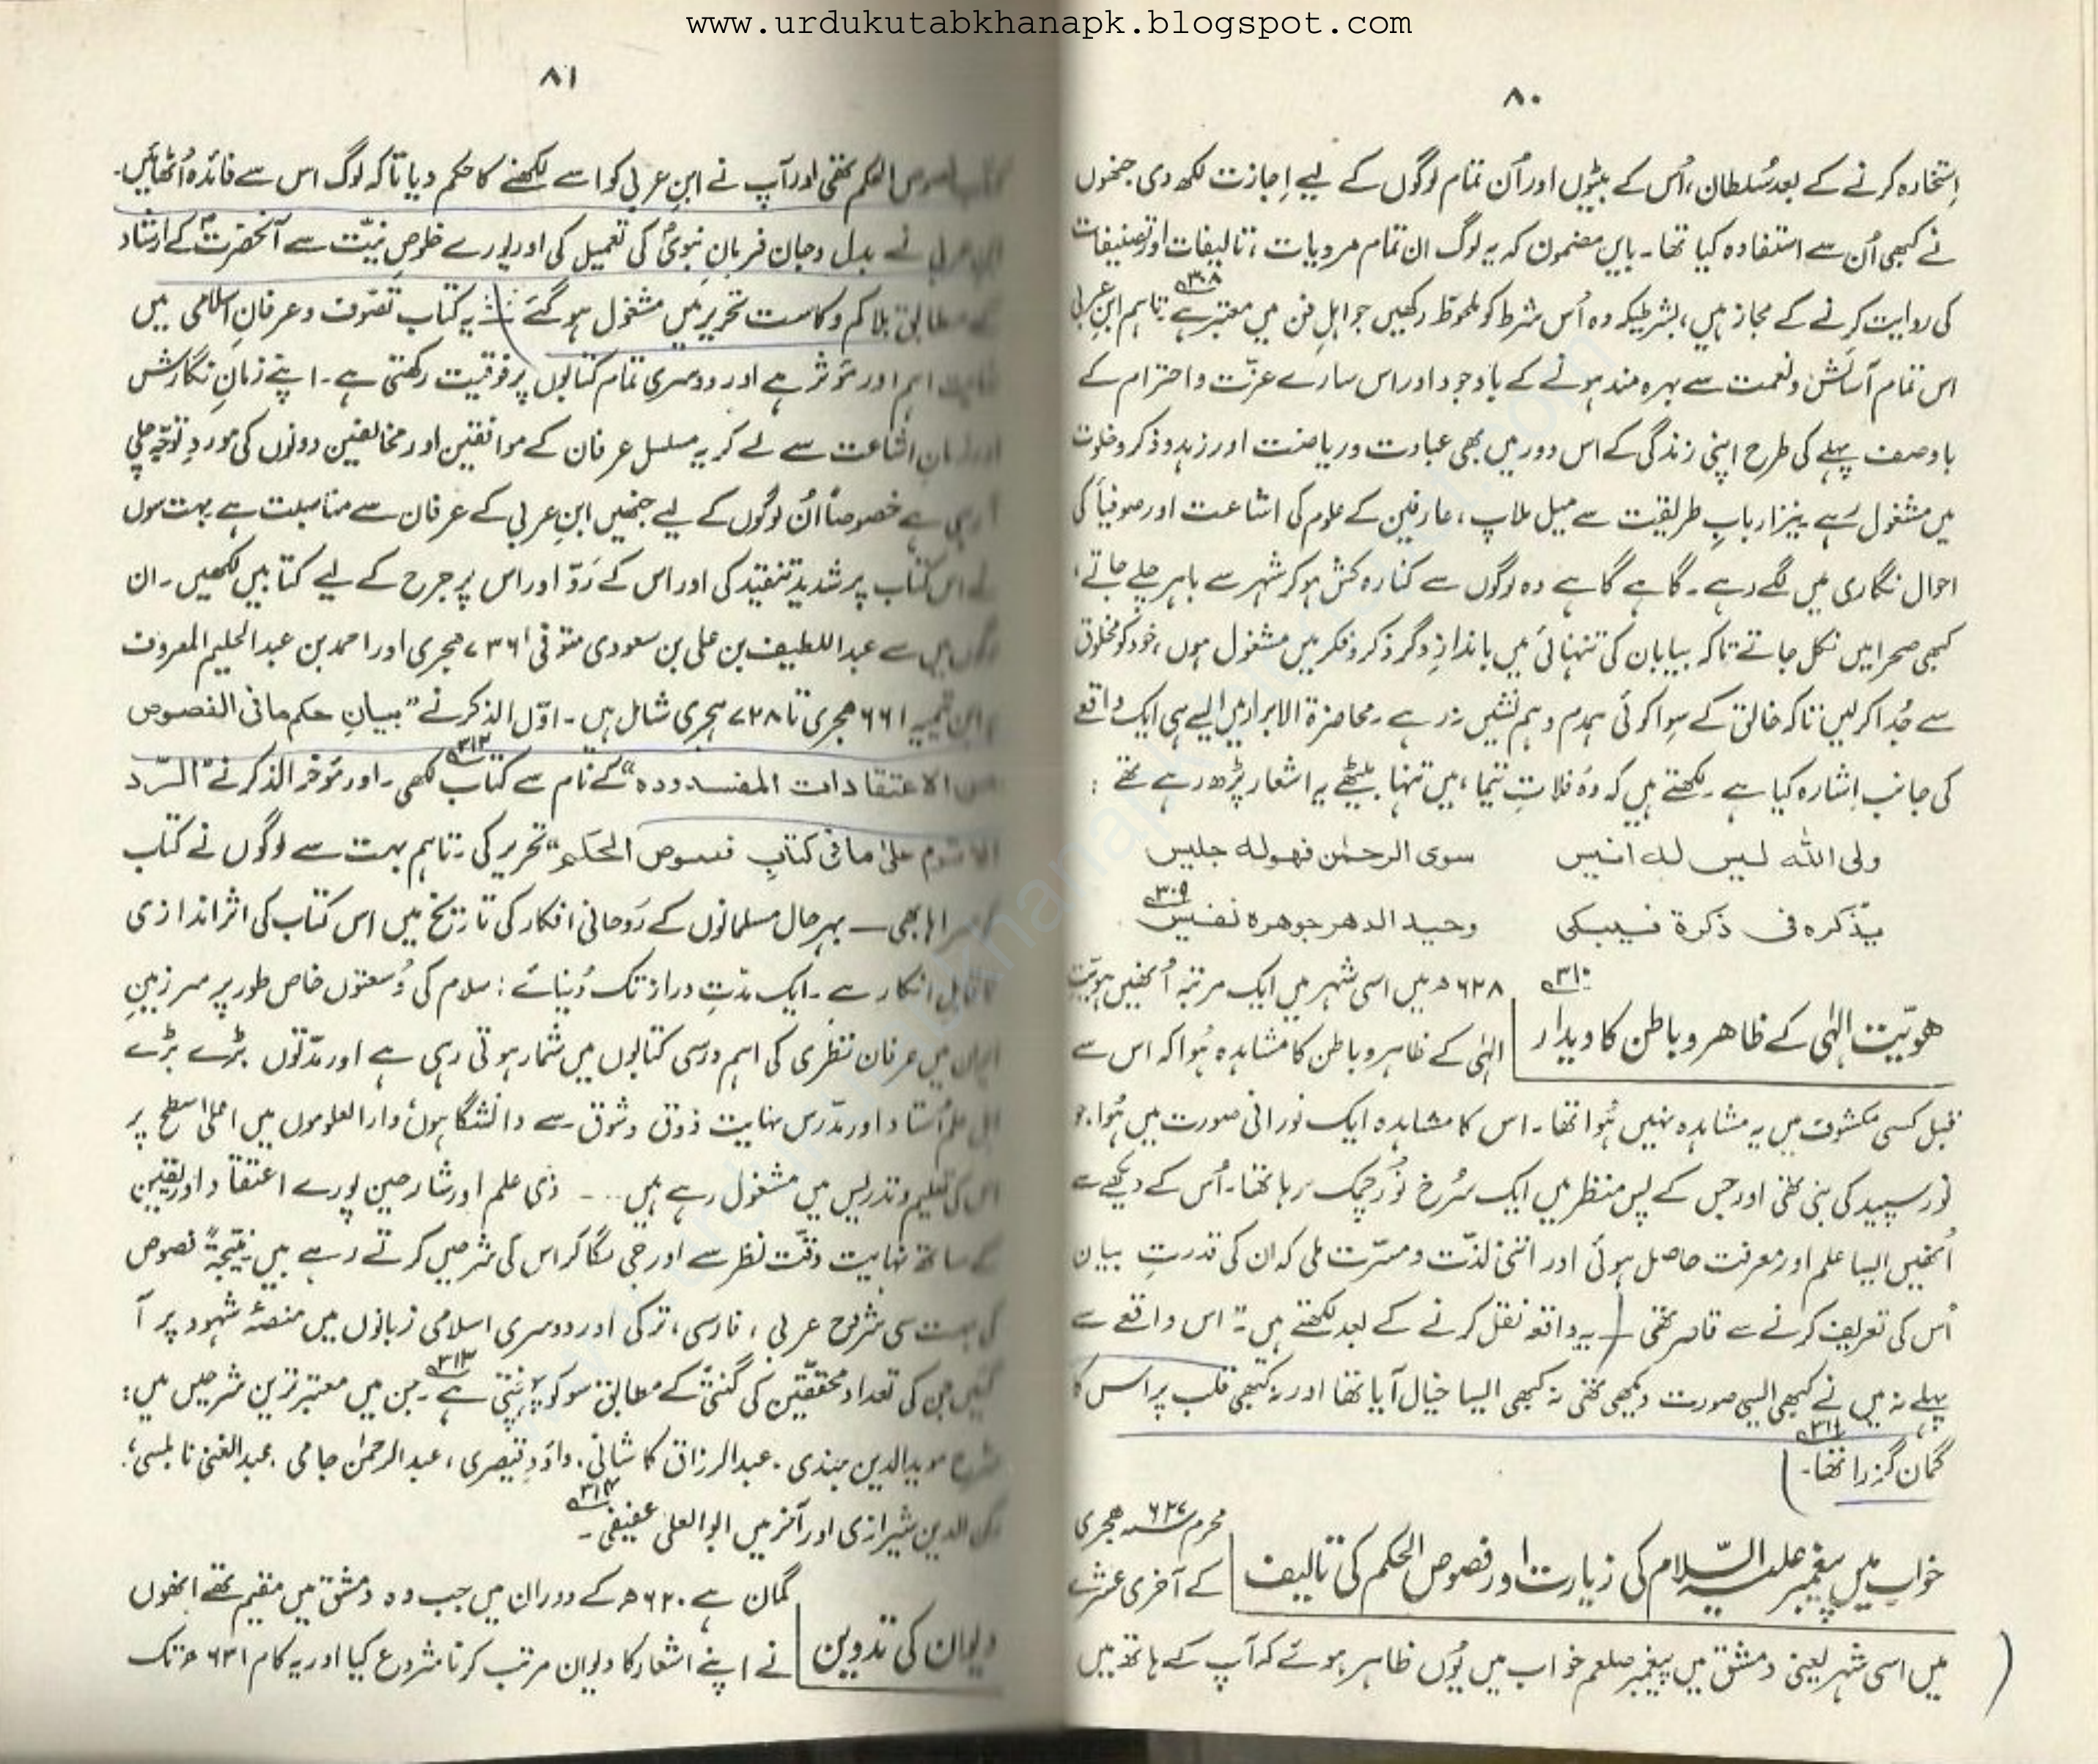 www.urdukutabkhanapk.blogspot.com
۸۰
اِستخارہ کرنے کے بعد سُلطان، اُس کے بیٹوں اور اُن تمام لوگوں کے لیے اِجازت لکھ دی جنھوں
نے کبھی اُن سے استفادہ کیا تھا۔ بایں مضمون کہ یہ لوگ ان تمام مرویات، تالیفات اور تصنیفات
کی روایت کرنے کے مجاز ہیں، بشرطیکہ وہ اُس شرط کو ملحوظ رکھیں جو اہلِ فن میں معتبر ہے ۳۰۸ تاہم ابنِ عربی
اس تمام آسائش و نعمت سے بہرہ مند ہونے کے باوجود اور اس سارے عزّت و احترام کے
باوصف پہلے کی طرح اپنی زندگی کے اس دور میں بھی عبادت و ریاضت اور زہد و ذکر و خلوت
میں مشغول رہے۔ نیز ارباب طریقت سے میل ملاپ، عارفین کے علوم کی اشاعت اور صوفیأ کی
احوال نگاری میں لگے رہے۔ گاہے گاہے وہ لوگوں سے کنارہ کش ہو کر شہر سے باہر چلے جاتے،
کبھی صحرا میں نکل جاتے تاکہ بیابان کی تنہائی میں باندازِ دگر ذکر و فکر میں مشغول ہوں، خود کو مخلوق
سے جُدا کر لیں تاکہ خالق کے سِوا کوئی ہمدم و ہم نشیں نہ رہے۔ محاضرۃ الابرار میں ایسے ہی ایک واقعے
کی جانب اِشارہ کیا ہے۔ لکھتے ہیں کہ وہ فلاتِ تیما، میں تنہا بیٹھے یہ اشعار پڑھ رہے تھے :
ولی اللہ لیس لہ انیس سوی الرحمٰن فھولہ جلیس
یذکرہ فی ذکرۃ فیبکی وحید الدھر جوھرہ نفیس ۳۰۹
ھویّت اِلٰہی کے ظاھر و باطن کا دیدار ۳۱۰
۶۲۸ھ میں اسی شہر میں ایک مرتبہ اُنھیں ہویّت
الہٰی کے ظاہر و باطن کا مشاہدہ ہُوا کہ اس سے
قبل کسی مکشوف میں یہ مشاہدہ نہیں ہُوا تھا۔ اس کا مشاہدہ ایک نورانی صورت میں ہُوا۔ جو
نورِ سپید کی بنی تھی اور جس کے پس منظر میں ایک سُرخ نُور چمک رہا تھا۔ اُس کے دیکھے سے
اُنھیں ایسا علم اور معرفت حاصل ہوئی اور اتنی لذّت و مسرّت ملی کہ ان کی قدرتِ بیان
اُس کی تعریف کرنے سے قاصر تھی۔ یہ واقعہ نقل کرنے کے بعد لکھتے ہیں۔ "اس واقعے سے
پہلے نہ میں نے کبھی ایسی صورت دیکھی تھی نہ کبھی ایسا خیال آیا تھا اور نہ کبھی قلب پر اس کا
گمان گزرا تھا۔ ۳۱۱
خواب میں پیغمبر علیہ السّلام کی زیارت اور فصوص الحکم کی تالیف
محرم ۶۲۷ ھجری
کے آخری عشرے
میں اسی شہر یعنی دمشق میں پیغمبر صلعم خواب میں یُوں ظاہر ہوئے کہ آپ کے ہاتھ میں
۸۱
الحکم تھی اور آپ نے ابنِ عربی کو اسے لکھنے کا حکم دیا تاکہ لوگ اس سے فائدہ اُٹھائیں۔
نے بدل و جان فرمانِ نبویؐ کی تعمیل کی اور پورے خلوصِ نیّت سے آنحضرتؐ کے ارشاد
کے مطابق بلا کم و کاست تحریر میں مشغول ہو گئے۔ یہ کتاب تصوّف و عرفانِ اسلامی میں
اہم اور مؤثر ہے اور دوسری تمام کتابوں پر فوقیت رکھتی ہے۔ اپنے زمانِ نگارش
اشاعت سے لے کر یہ مسلسل عرفان کے موافقین اور مخالفین دونوں کی موردِ توجّہ چلی
آ رہی ہے خصوصاً اُن لوگوں کے لیے جنھیں ابنِ عربی کے عرفان سے مناسبت ہے بہت سوں
نے اس کتاب پر شدید تنقید کی اور اس کے رَدّ اور اس پر جرح کے لیے کتابیں لکھیں۔ ان
میں سے عبداللطیف بن علی بن سعودی متوفی ۷۳۶ ہجری اور احمد بن عبدالحلیم المعروف
ابن تیمیہ ۶۶۱ ھجری تا ۷۲۸ ہجری شامل ہیں۔ اوّل الذکر نے "بیانِ حکم مافی الفصوص
الاعتقادات المفسدودہ" کے نام سے کتاب لکھی۔ ۳۱۲ اور مؤخر الذکر نے "الرّد
علیٰ مافی کتابِ فصوص الحکم" تحریر کی۔ تاہم بہت سے لوگوں نے کتاب
کو سراہا بھی — بہرحال مسلمانوں کے رَوحانی افکار کی تاریخ میں اس کتاب کی اثر اندازی
ناقابلِ انکار ہے۔ ایک مدّتِ دراز تک دُنیائے اسلام کی وُسعتوں خاص طور پر سرزمینِ
ایران میں عرفان نظری کی اہم درسی کتابوں میں شمار ہوتی رہی ہے اور مدّتوں بڑے بڑے
اہلِ علم اُستاد اور مدّرس نہایت ذوق و شوق سے دانشگاہوں، دارالعلوموں میں اعلیٰ سطح پر
اس کی تعلیم و تدریس میں مشغول رہے ہیں ... ۔ ذی علم اور شارحین پورے اعتقاد اور یقین
کے ساتھ نہایت دقّت نظر سے اور جی لگا کر اس کی شرحیں کرتے رہے ہیں۔ نتیجۃً فصوص
کی بہت سی شروح عربی، فارسی، ترکی اور دوسری اسلامی زبانوں میں منصّۂ شہود پر آ
گئیں جن کی تعداد محققّین کی گنتی کے مطابق سو کو پہنچتی ہے۔ ۳۱۳ جن میں معتبر ترین شرحیں ہیں:
شرح موید الدین جندی، عبدالرزاق کاشانی، داؤد قیصری، عبدالرحمٰن جامی، عبدالغنی نابلسی،
الدین شیرازی اور آخر میں ابوالعلیٰ عفیفی۔ ۳۱۴
دیوان کی تدوین
گمان ہے ۶۲۰ھ کے دوران میں جب وہ دمشق میں مقیم تھے انھوں
نے اپنے اشعار کا دیوان مرتب کرنا شروع کیا اور یہ کام ۶۳۱ھ تک